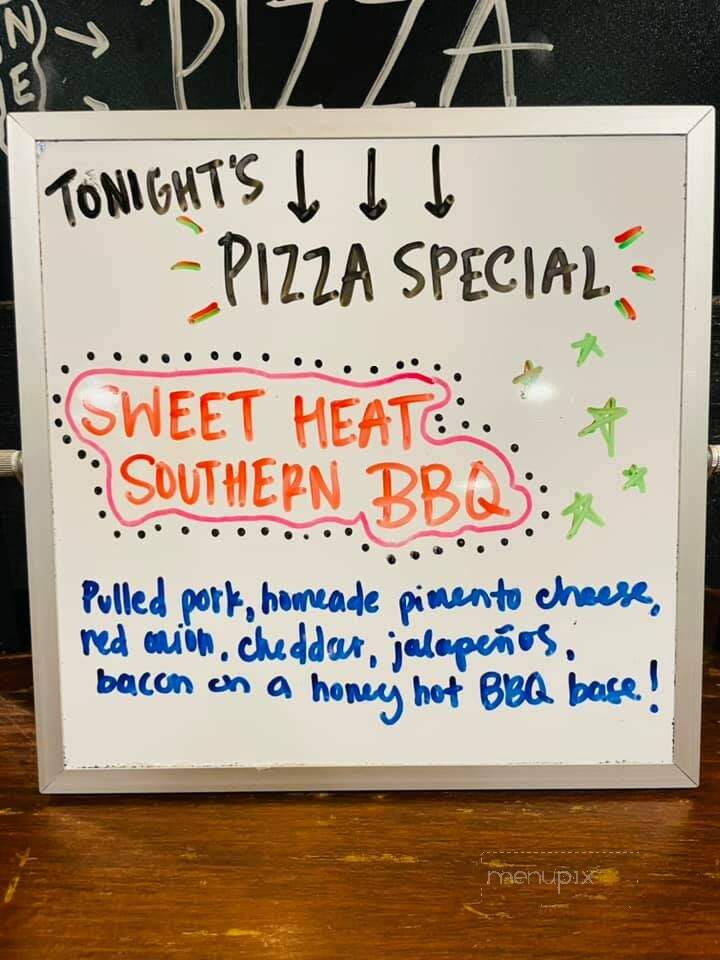 N
E
PIZZA
TONIGHT'S
PIZZA SPECIAL
SWEET HEAT
SOUTHERN BBQ
Pulled pork, homeade pimento cheese,
red onion, cheddar, jalapeños,
bacon on a honey hot BBQ base!
menupix